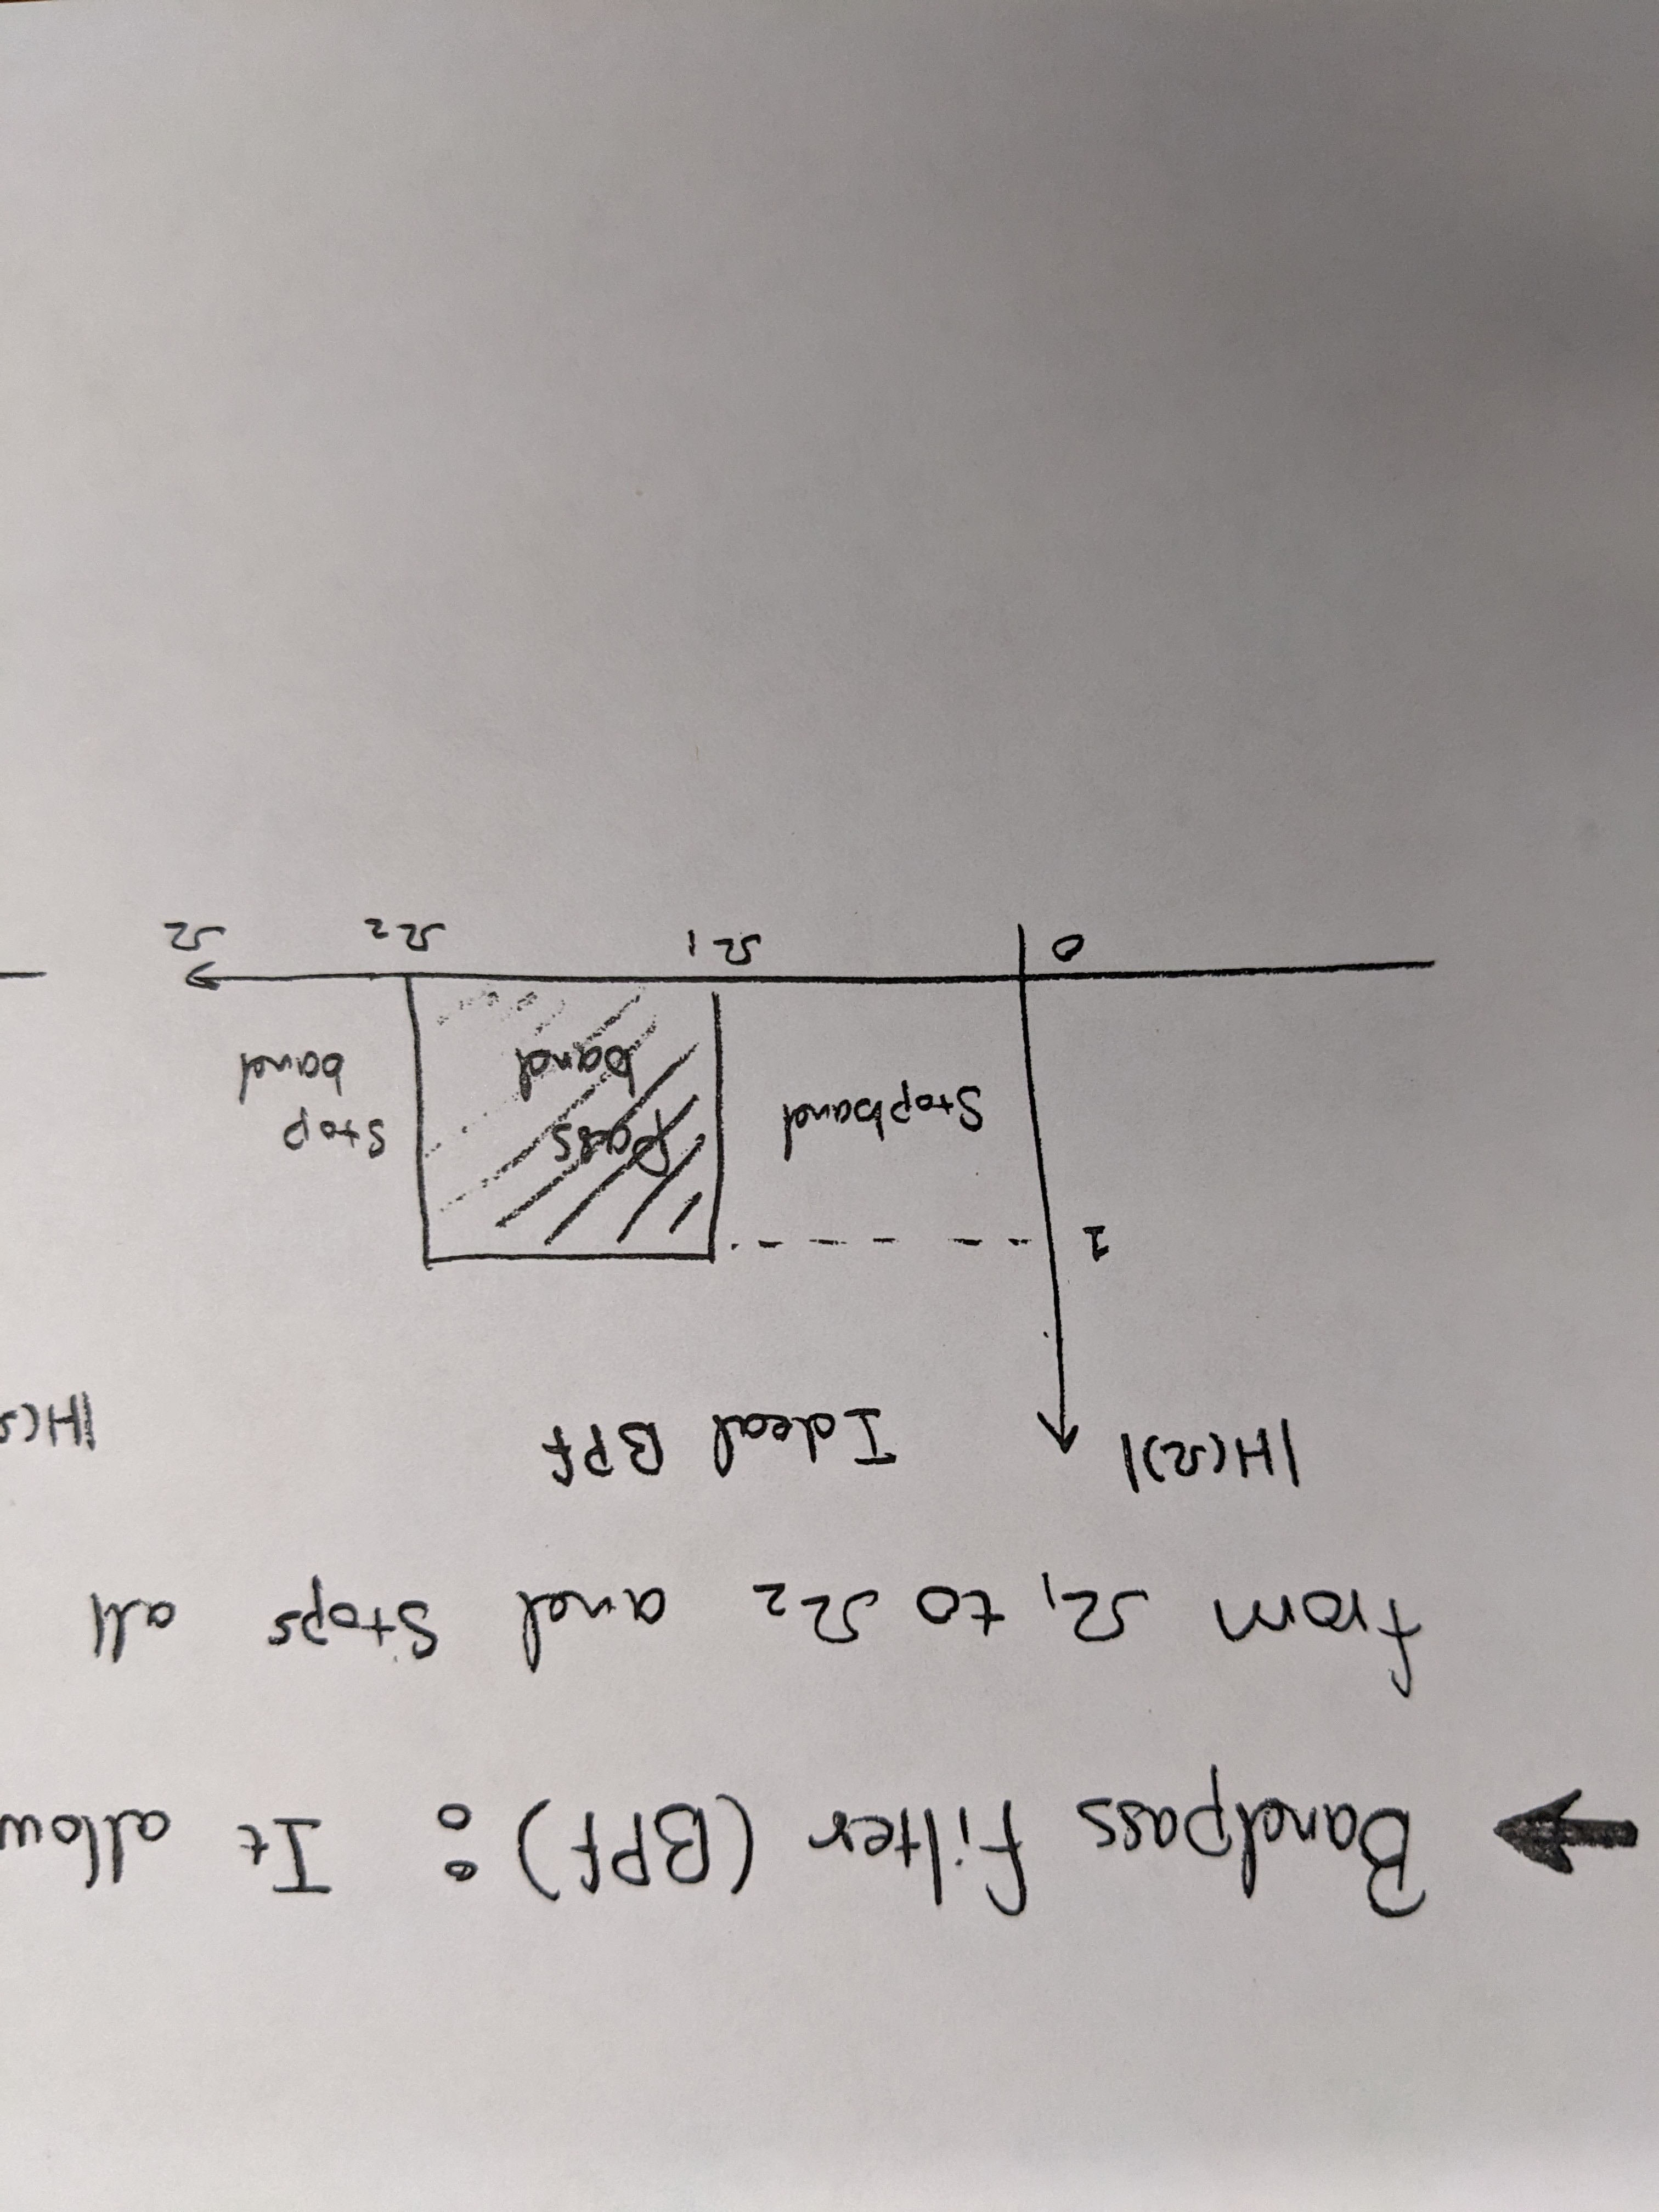 → Bandpass filter (BPf): It allow
from Ω₁ to Ω₂ and stops all
|H(Ω)|
Ideal BPf
|H(Ω
1
Stopband
Pass
band
Stop
band
0
Ω₁
Ω₂
Ω